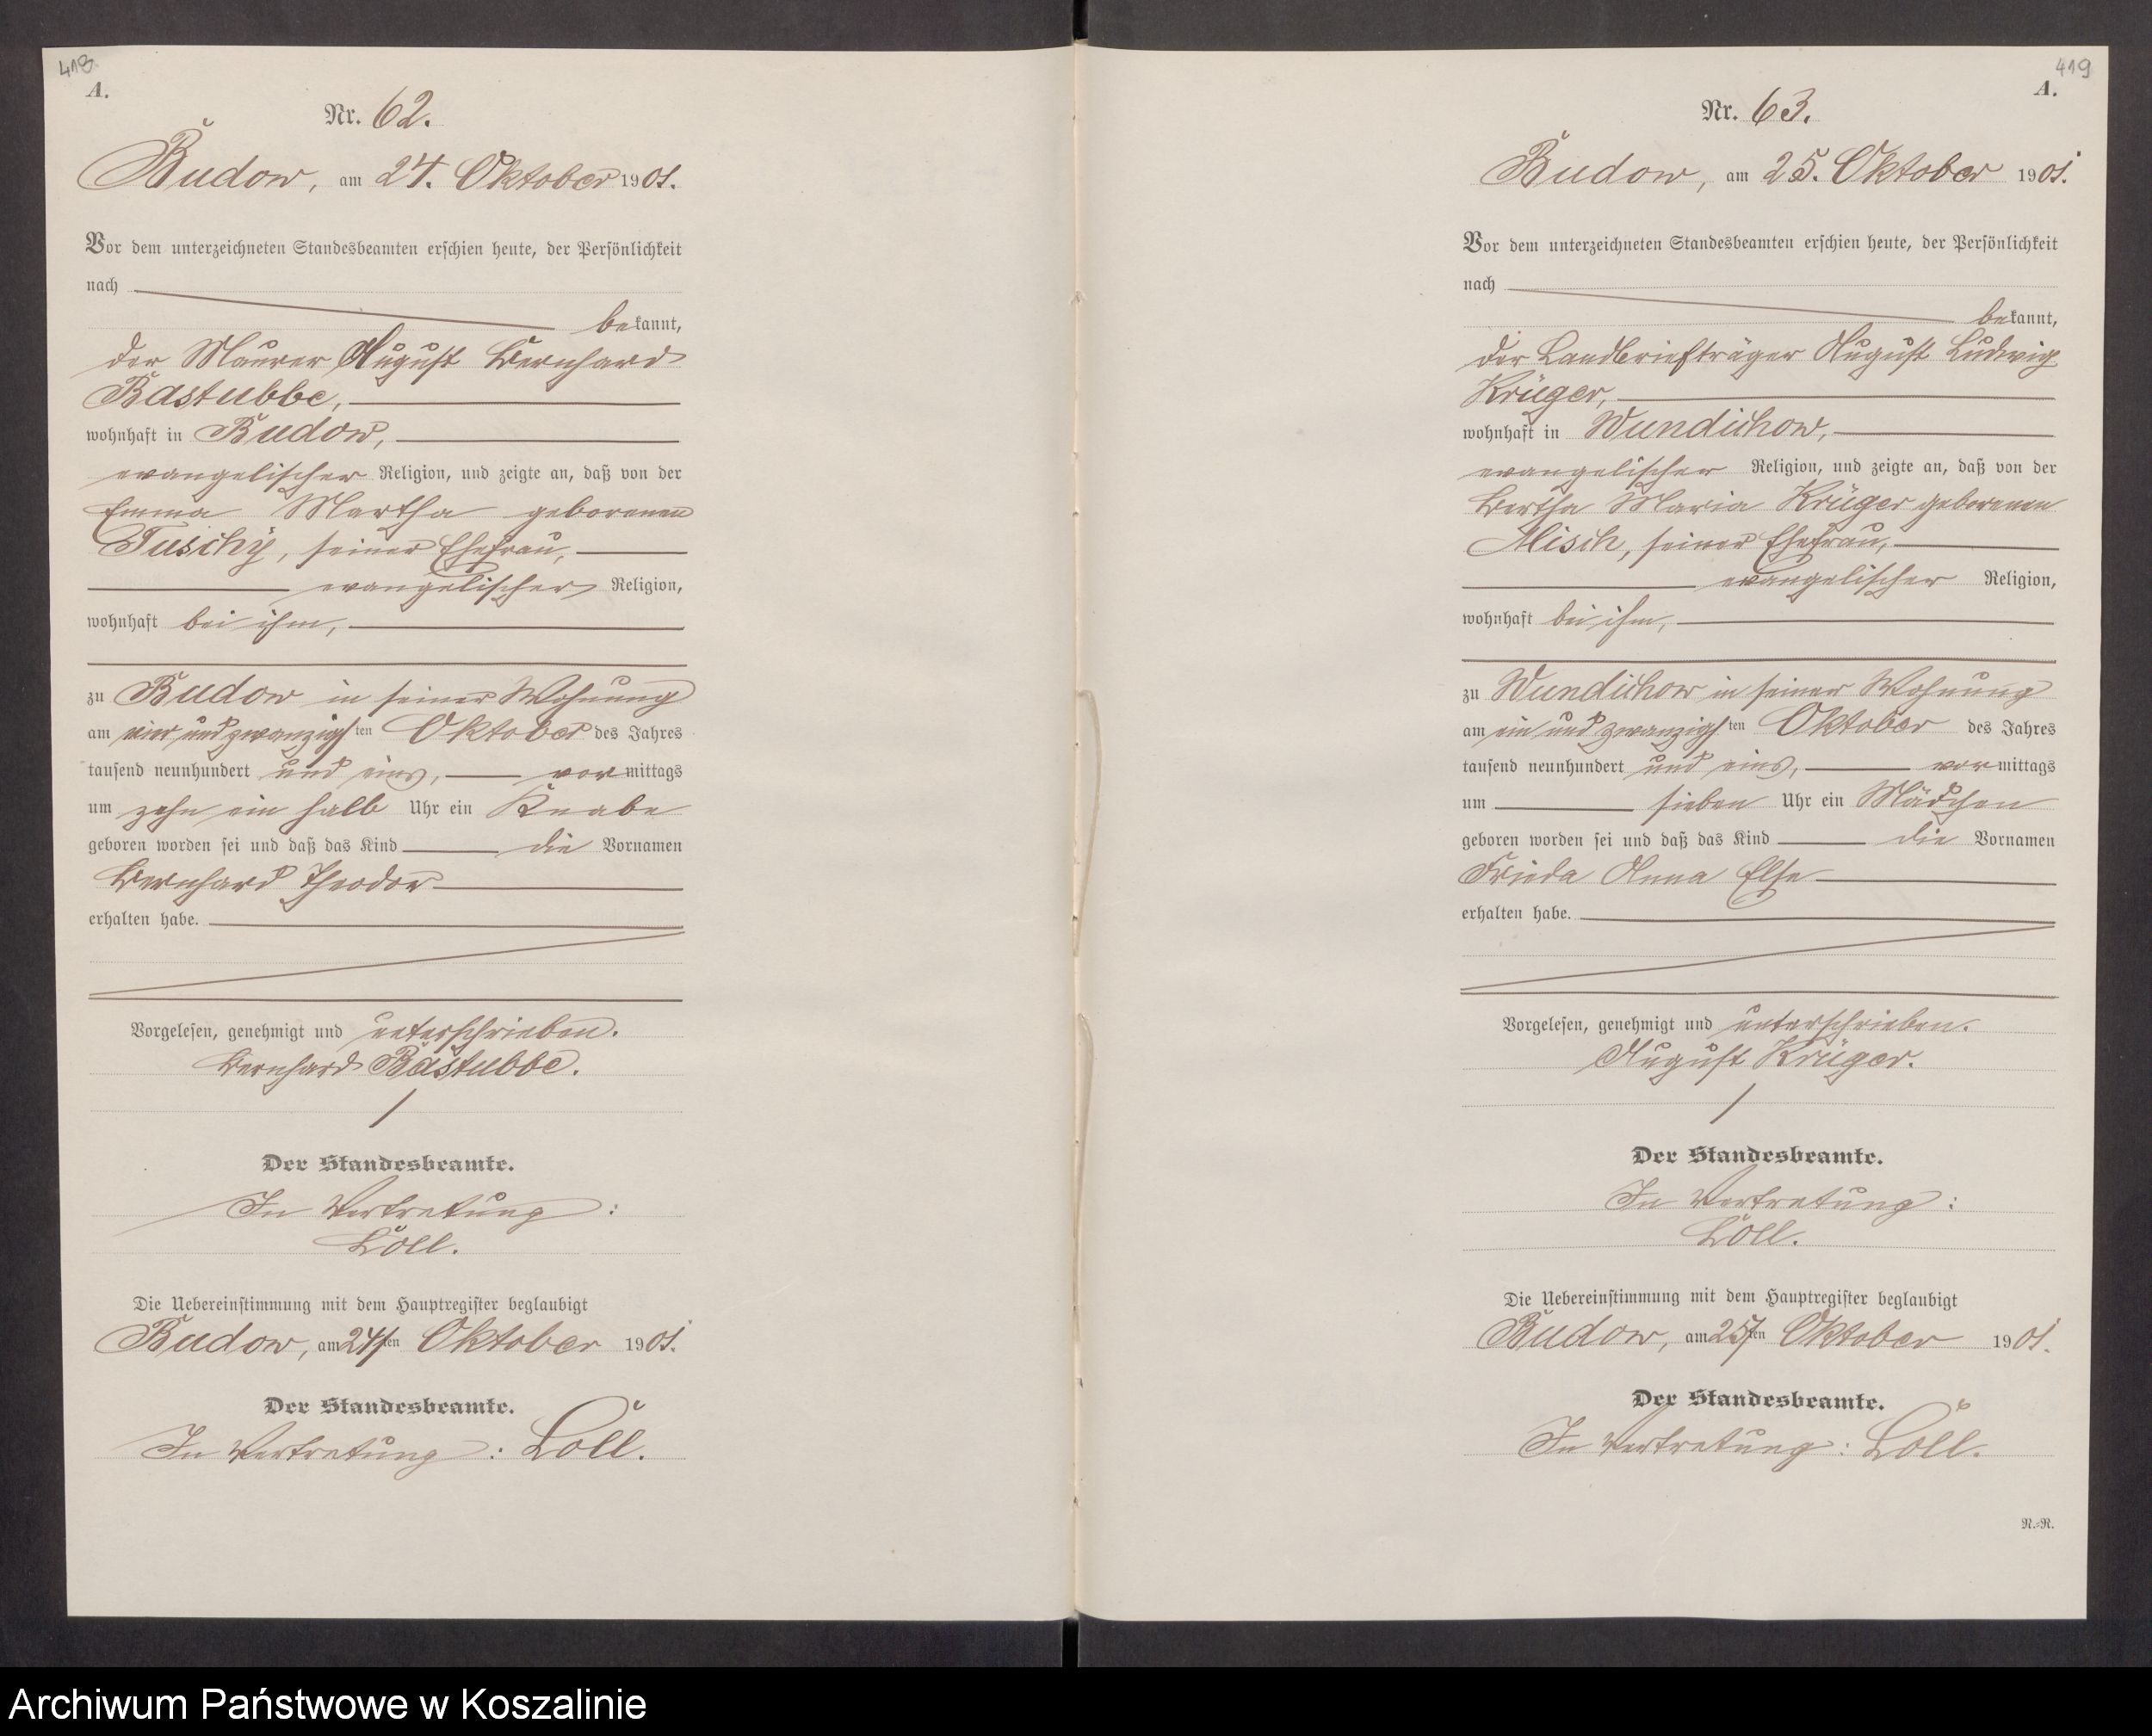 418
A.
Nr. 62.
Budow, am 24. Oktober 1901.
Vor dem unterzeichneten Standesbeamten erschien heute, der Persönlichkeit
nach
bekannt,
der Maurer August Bernhard
Bastubbe,
wohnhaft in Budow,
evangelischer Religion, und zeigte an, daß von der
Emma Martha geborenen
Tuschy, seiner Ehefrau,
evangelischer Religion,
wohnhaft bei ihm,
zu Budow in seiner Wohnung
am vier und zwanzigsten Oktober des Jahres
tausend neunhundert und eins, vormittags
um zehn ein halb Uhr ein Knabe
geboren worden sei und daß das Kind die Vornamen
Bernhard Theodor
erhalten habe.
Vorgelesen, genehmigt und unterschrieben.
Bernhard Bastubbe.
Der Standesbeamte.
In Vertretung:
Löll.
Die Uebereinstimmung mit dem Hauptregister beglaubigt
Budow, am 24ten Oktober 1901.
Der Standesbeamte.
In Vertretung: Löll.
419
A.
Nr. 63.
Budow, am 25. Oktober 1901.
Vor dem unterzeichneten Standesbeamten erschien heute, der Persönlichkeit
nach
bekannt,
der Landbriefträger August Ludwig
Krüger,
wohnhaft in Wundichow,
evangelischer Religion, und zeigte an, daß von der
Bertha Maria Krüger geborenen
Misch, seiner Ehefrau,
evangelischer Religion,
wohnhaft bei ihm,
zu Wundichow in seiner Wohnung
am ein und zwanzigsten Oktober des Jahres
tausend neunhundert und eins, vormittags
um sieben Uhr ein Mädchen
geboren worden sei und daß das Kind die Vornamen
Frieda Anna Else
erhalten habe.
Vorgelesen, genehmigt und unterschrieben.
August Krüger.
Der Standesbeamte.
In Vertretung:
Löll.
Die Uebereinstimmung mit dem Hauptregister beglaubigt
Budow, am 25ten Oktober 1901.
Der Standesbeamte.
In Vertretung: Löll.
R.=R.
Archiwum Państwowe w Koszalinie